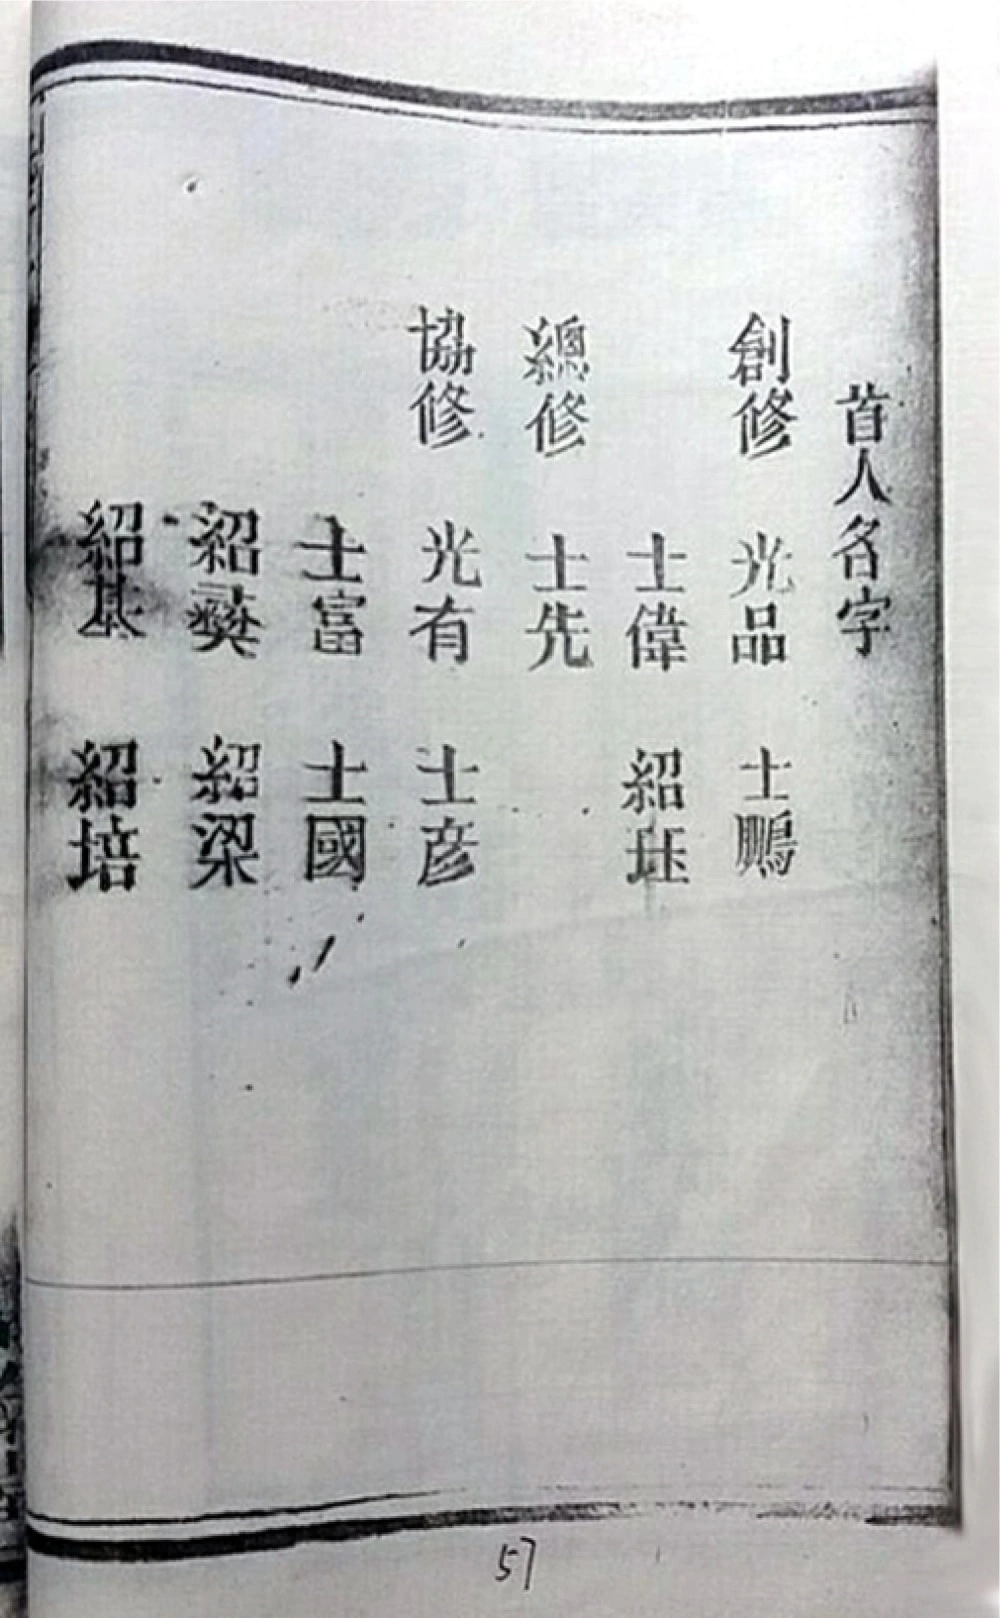 首人名字
創修 光品 士鵬
士偉 紹珏
總修 士先
協修 光有 士彦
士富 士國
紹 紹梁
紹基 紹培
57